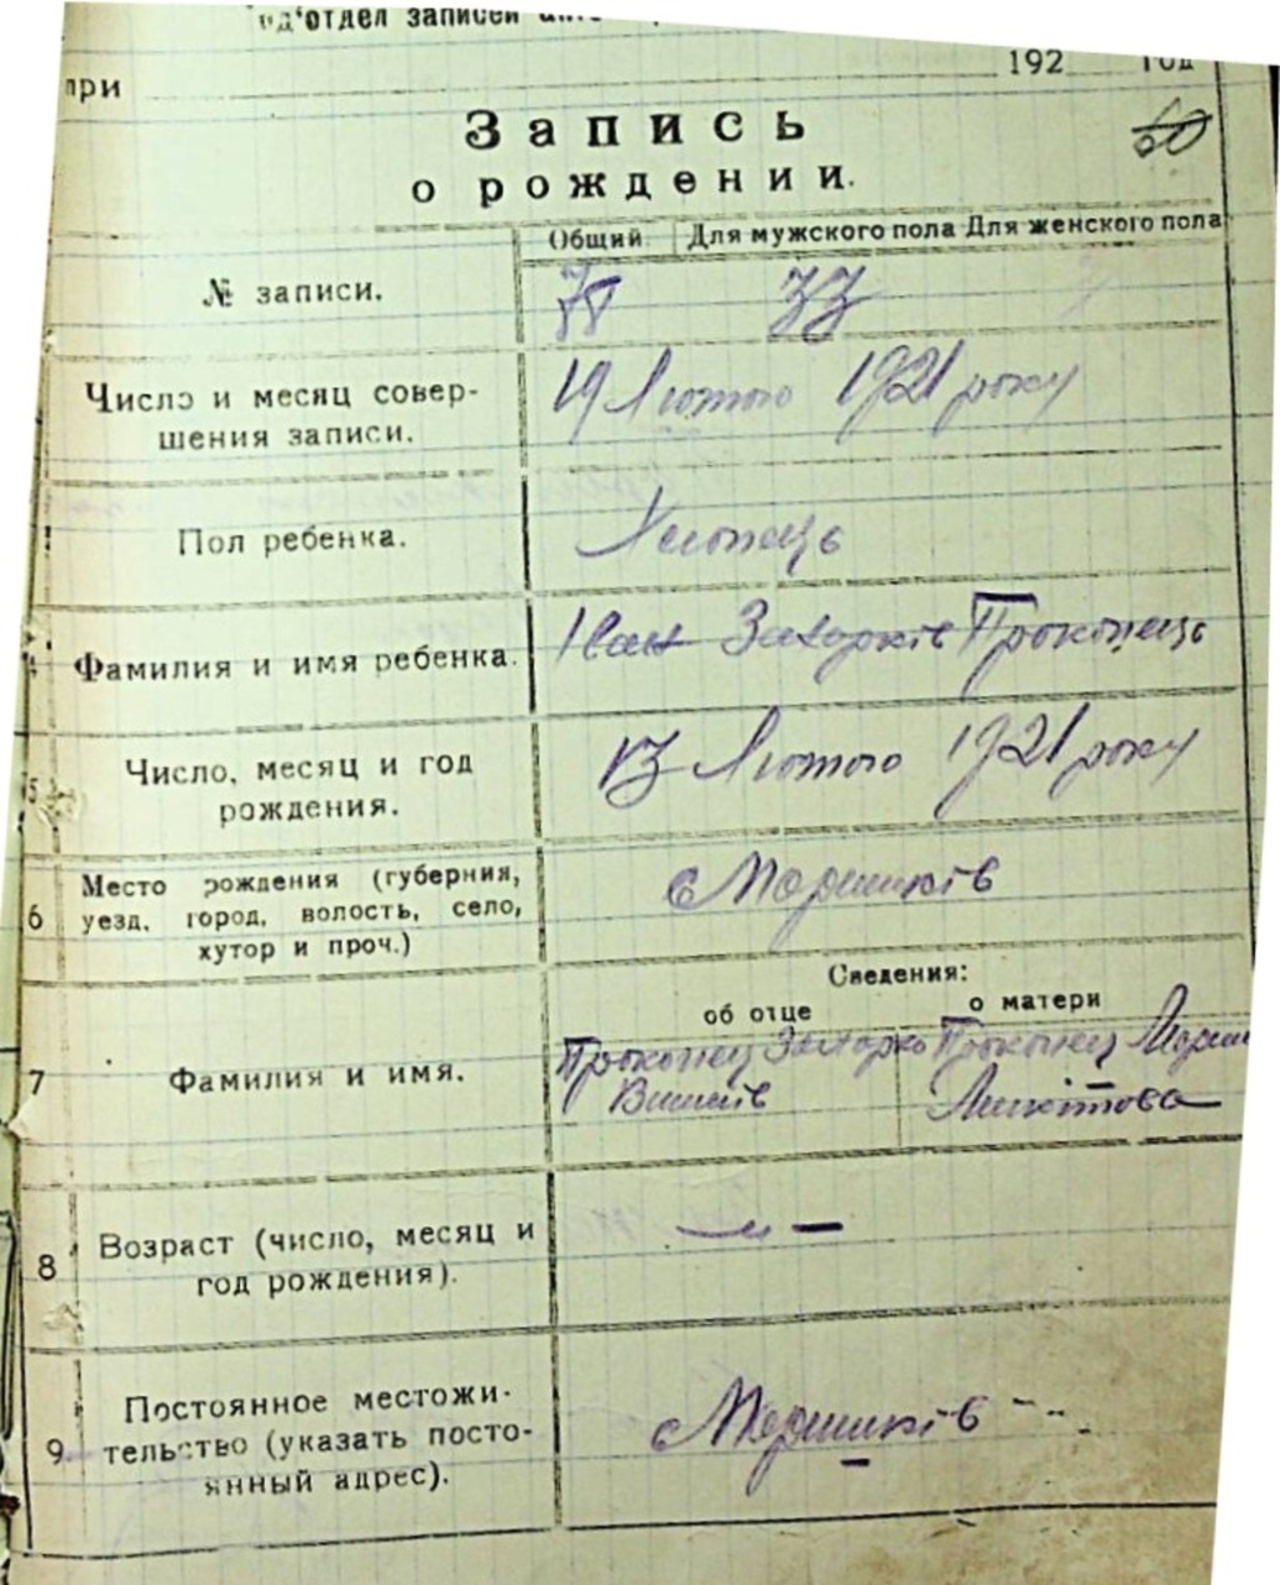 од'отдел записей
при 192 год
Запись
о рождении.
60
Общий Для мужского пола Для женского пола
№ записи.
Число и месяц совер-
шения записи.
19 Лютого 1921 року
Пол ребенка.
Хлопець
Фамилия и имя ребенка.
Іван Захарків Прокопець
5
Число, месяц и год
рождения.
13 Лютого 1921 року
6
Место рождения (губерния,
уезд, город, волость, село,
хутор и проч.)
с Моршнів
Сведения:
об отце о матери
7
Фамилия и имя.
Прокопец Захарко Прокопец
Микитова
8
Возраст (число, месяц и
год рождения).
9
Постоянное местожи-
тельство (указать посто-
янный адрес).